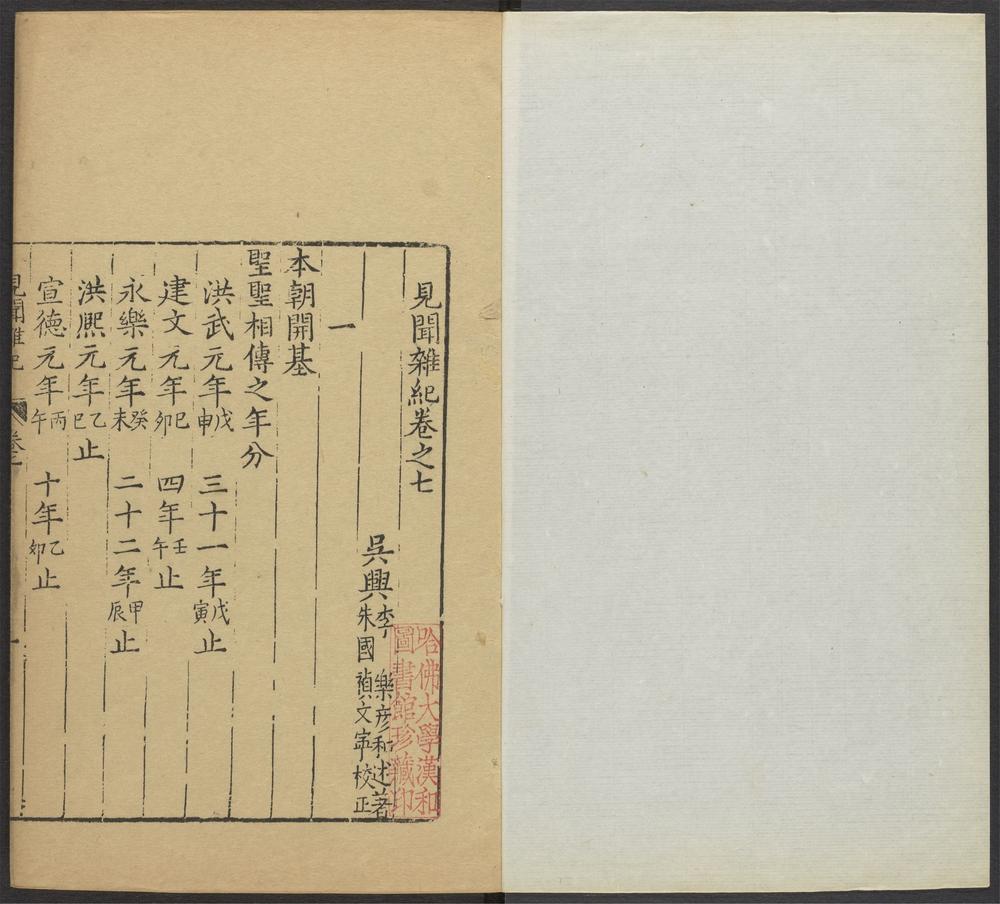 見聞雜紀卷之七
吳興李樂彦和述著
朱國禎文寜校正
一
本朝開基
聖聖相傳之年分
洪武元年戊申 三十一年戊寅止
建文元年己卯 四年壬午止
永樂元年癸未 二十二年甲辰止
洪熙元年乙巳止
宣德元年丙午 十年乙卯止
見聞雜紀 卷七 一
哈佛大學漢和
圖書館珍藏印